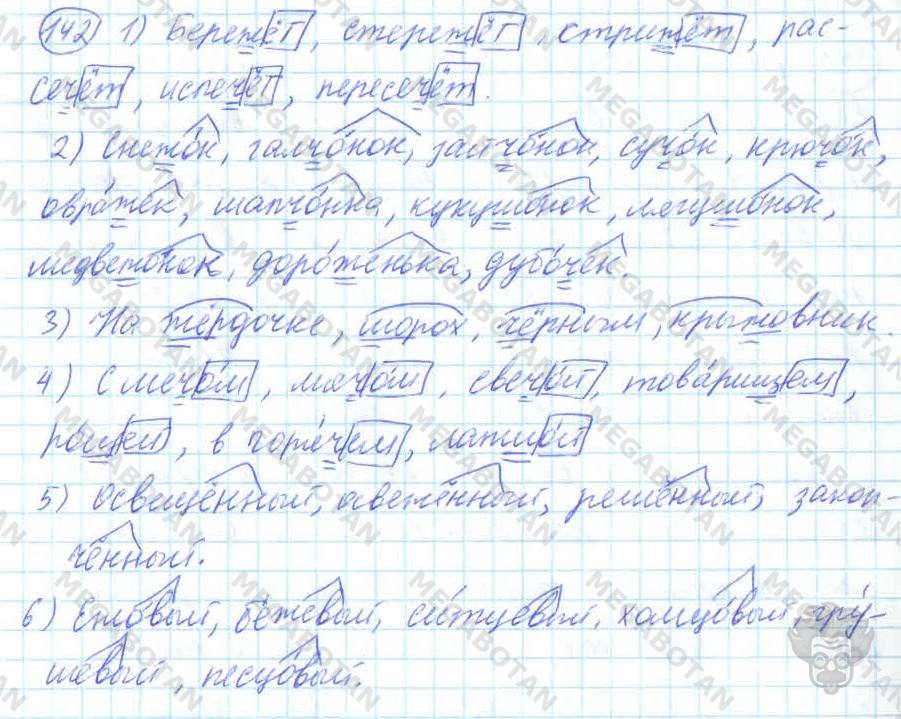 142 1) Бережёт, стережёт, стрижёт, рас-
сечёт, испечёт, пересечёт.
2) Снежок, галчонок, зайчонок, сучок, крючок,
овражек, шапчонка, кукушонок, лягушонок,
медвежонок, дороженька, дубочек
3) На жёрдочке, шорох, чёрным, крыжовник.
4) С мечом, мячом, свечой, товарищем,
рощей, в горячем, лапшой
5) Освещённый, освежённый, решённый, закон-
ченный.
6) Ежовый, бежевый, ситцевый, холщовый, гру-
шевый, песцовый.
MEGABOTAN